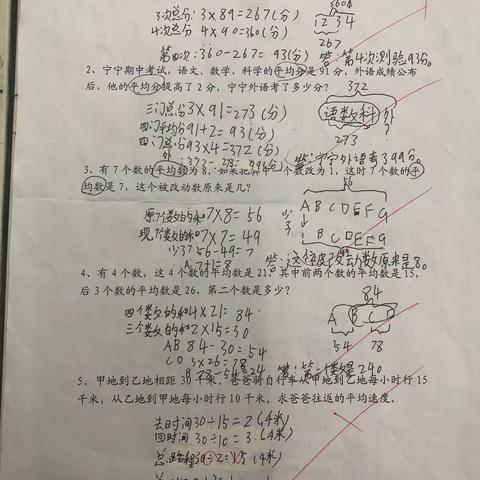 360分
3次总分:3×89=267(分)
1 2 3 4
4次总分 4×90=360(分)
267
第四次:360-267=93(分) 答:第4次测验93分。
2、宁宁期中考试,语文、数学、科学的平均分是 91 分,外语成绩公布
372
后,他的平均分提高了 2 分,宁宁外语考了多少分?
三门总分3×91=273(分)
语数科 外
四门平均分91+2=93(分)
?
四门总分93×4=372(分)
273
答:宁宁外语考了99分。
3、有 7 个数的平均数为 8,如果把其中一个数改为 1,这时 7 个数的平
56
均数是 7,这个被改动数原来是几?
A B C D E F G
原7个数的和7×8=56
现7个数的和7×7=49
1 B C D E F G
少了56-49=7
A:7+1=8
4、有 4 个数,这 4 个数的平均数是 21,其中前两个数的平均数是 15,
84
后 3 个数的平均数是 26,第二个数是多少?
四个数的和4×21=84
A B C D
2×15=30
54 78
AB 84-30=54
CD 3×26=78
B 78-54=24
5、甲地到乙地相距 30 千米。爸爸骑自行车从甲地到乙地每小时行 15
千米,从乙地到甲地每小时行 10 千米,求爸爸往返的平均速度。
去时间30÷15=2(千米)
回时间30÷10=3(千米)
总路程30÷2=15(千米)